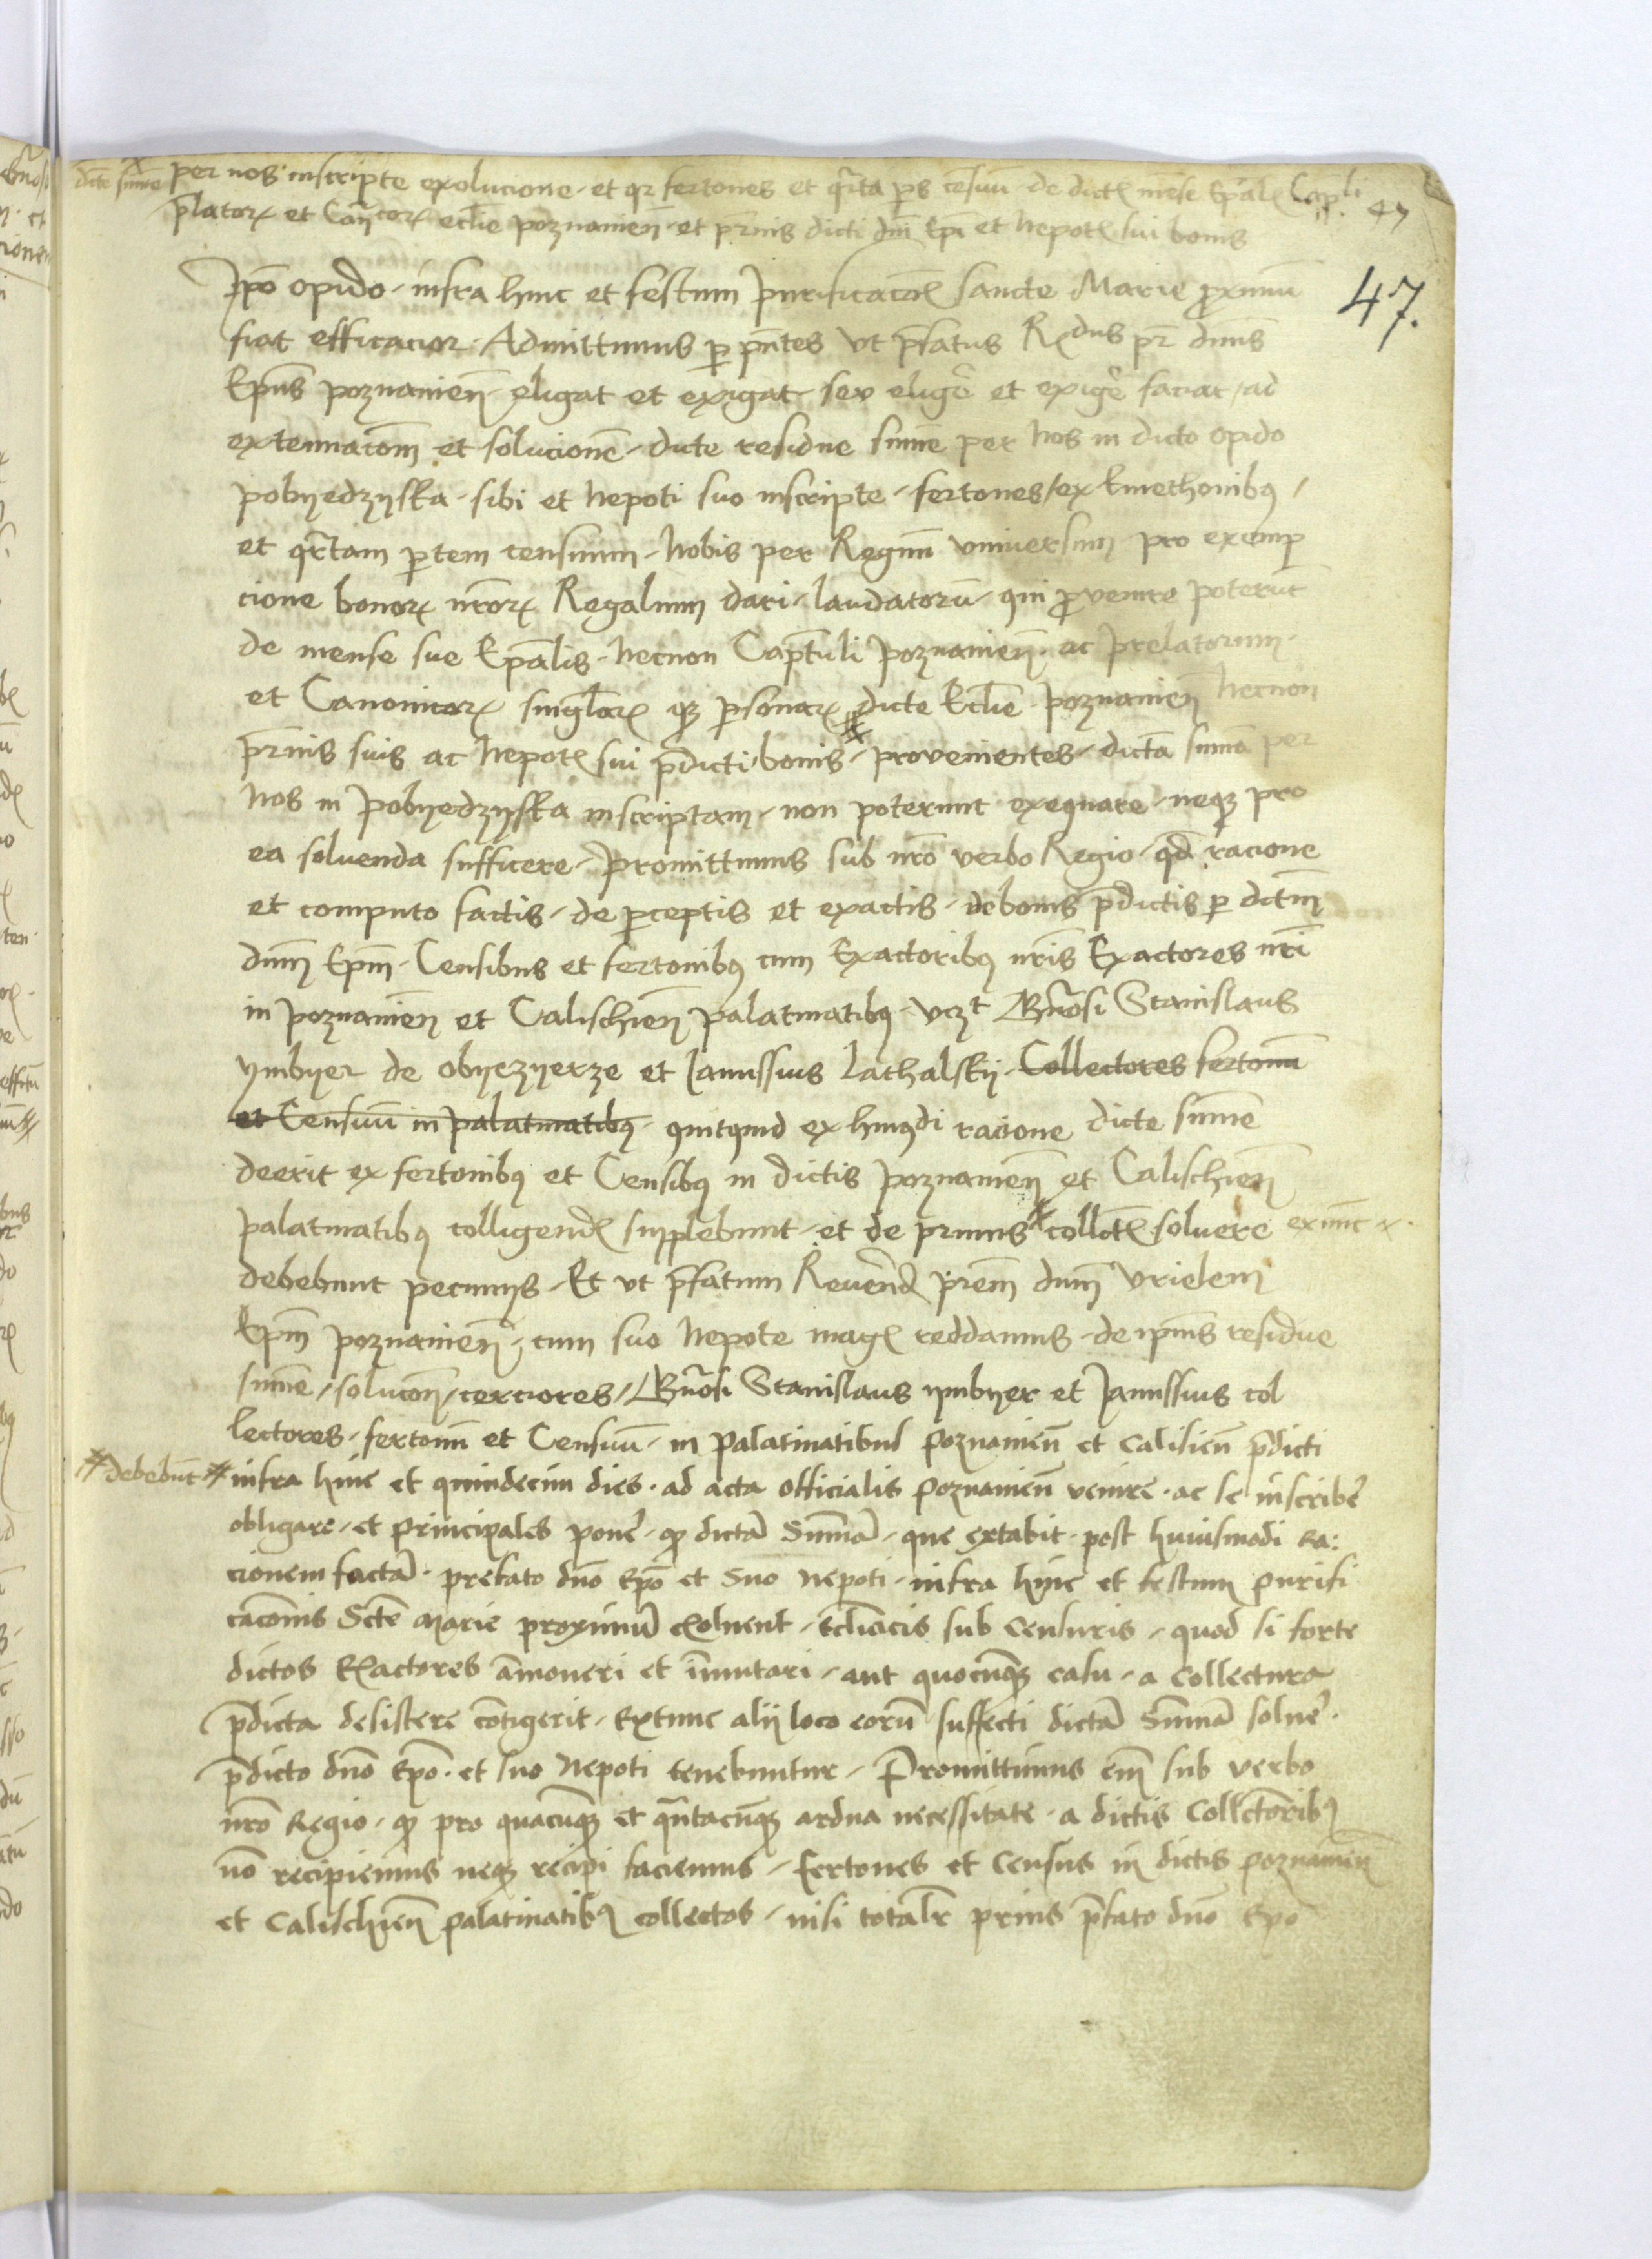 dicte sum̄e per nos inscripte exolucione et qr fertones et qr̄ta ps censuū de dict mēse Epāl Capli
p̄lator et Can̄cor eccl̄ie poznanien̄ et pr̄nis dicti dn̄i Epi et Nepot sui bonis
47
47.
Ip̄o opido infra hinc et festum purificacōis sancte Marie proximū
fiat efficacior Admittimus p p̄ntes vt p̄fatus Rdus pr dn̄us
Ep̄us poznanien̄ eligat et exigat seu eligē et exigē faciat ad
extenuacōem et solucionē dicte residue sum̄e per nos in dicto opido
pobyedzyska sibi et Nepoti suo inscripte fertones ex kmethonibus
et qr̄tam ptem censuum Nobis per Regnū vniuersum pro exemp
cione bonor nr̄or Regalium dari laudatorū qui prouenire poterūt
de mense sue Ep̄alis Necnon Cap̄tuli poznanien̄ ac prelatorum
et Canonicor singlor q psonar dicte Eccl̄ie poznanien̄ necnon
pr̄nis suis ac Nepot sui p̄dicti bonis prouenientes dictā sum̄ā per
nos in pobyedzyska inscriptam non poterunt exequare neq pro
ea soluenda sufficere promittimus sub nr̄o verbo Regio qd racione
et computo factis de pceptis et exactis de bonis p̄dictis p dictm̄
dn̄m Ep̄m Censibus et fertonibus cum Exactoribus nr̄is Exactores nr̄i
in poznanien̄ et Calischien̄ palatinatibus vczt Gn̄osi Stanislaus
ymbyer de obyezyerze et Janussius Lathalskij Collectores fertonū
et Censuū in palatinatibus quitquid ex hmōi racione dicte sum̄e
deerit ex fertonibus et Censibus in dictis poznanien̄ et Calischien̄
palatinatibus colligend supplebunt et de primis collect soluere extunc
debebunt pecunijs Et vt p̄fatum Reuerend prēm dn̄m Vrielem
Ep̄m poznanien̄ cum suo Nepote mag reddamus de ip̄ius residue
sum̄e solucōn cerciores Gn̄osi Stanislaus ymbyer et Janussius col
lectores fertonū et Censuū in palatinatibus poznanien̄ et calisien̄ p̄dicti
debebūt infra hinc et quindecim dies ad acta officialis poznanien̄ venire ac se inscribē
obligare et principales ponē q dictā Sum̄ā que extabit post huiusmodi ra:
cionem factā prefato dn̄o Ep̄o et suo Nepoti infra hinc et festum purifi
cacōnis Scte Marie proximū exoluent Eccl̄iacis sub censuris quod si forte
dictos Exactores am̄oueri et im̄utari aut quocūq casu a collectura
p̄dicta desistere cōtigerit Extunc alij loco eorū suffecti dictā Sum̄ā soluē
p̄dicto dn̄o Ep̄o et suo Nepoti tenebuntur Promittimus em̄ sub verbo
nr̄o Regio q pro quacūq et qn̄tacūq ardua necessitate a dictis Collectoribus
nō recipiemus neq recipi faciemus fertones et census in dictis poznanien̄
et Calischien̄ palatinatibus collectos nisi totalr prius p̄fato dn̄o Ep̄o